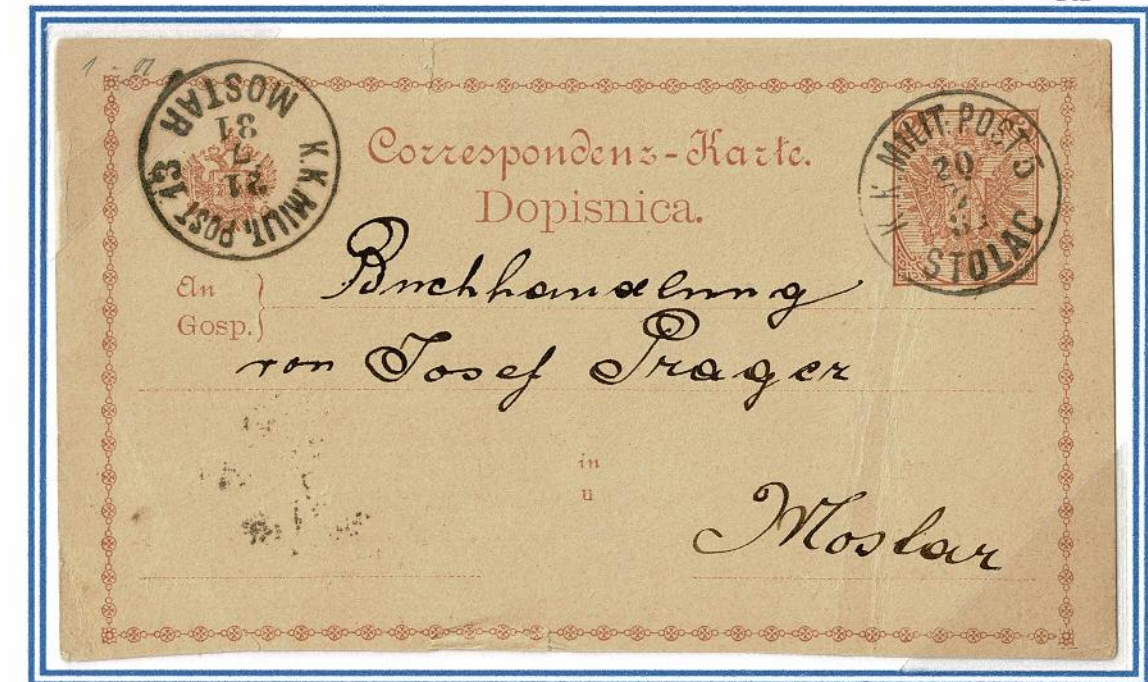 1 - 01
K.K. MILIT. POST 13
MOSTAR
21
7
Correspondenz-Karte.
Dopisnica.
K.K. MILIT. POST 5
20
STOLAC
An
Gosp.
Buchhandlung
von Josef Prager
in
u
Mostar